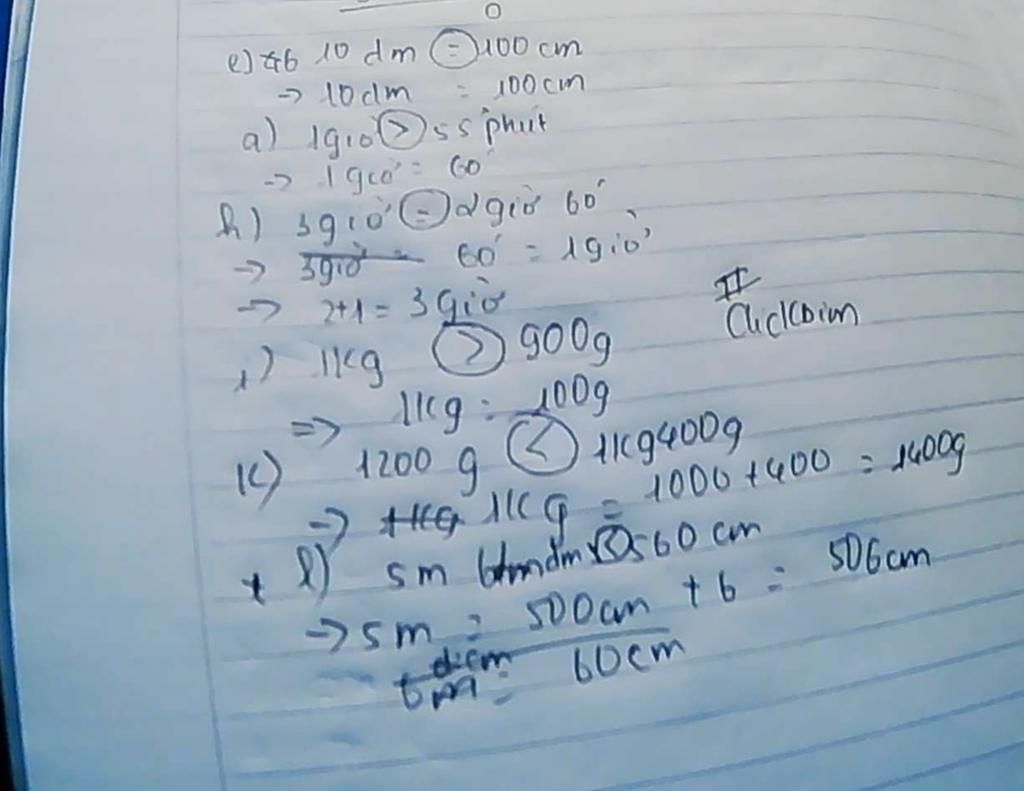 e) 10 dm = 100 cm
→ 10dm = 100cm
a) 1giờ > 55 phút
→ 1 giờ = 60'
h) 3giờ = 2giờ 60'
→ 3giờ = 60' = 1giờ
→ 2+1 = 3 Giờ
i) 1kg > 900g
II
=> 1kg = 100g
k) 1200 g < 1kg400g
→ 1kg 1kg = 1000 + 400 = 1400g
l) 5m dm 560 cm
→ 5m = 500cm + 6 = 506cm
6 = 60cm